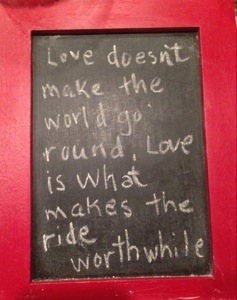 Love doesn't
make the
world go
round, Love
is what
makes the
ride
worthwhile